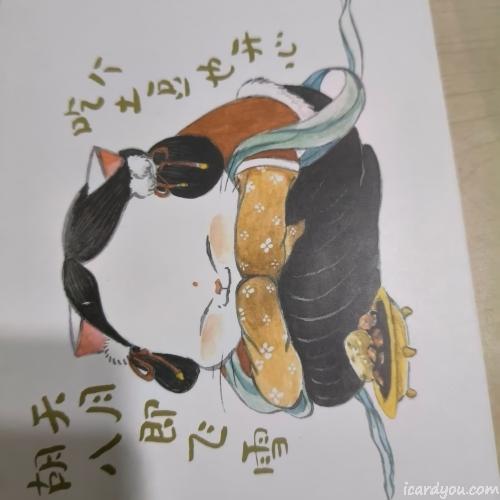 胡天八月即飞雪
吃个土豆也开心
icardyou.com